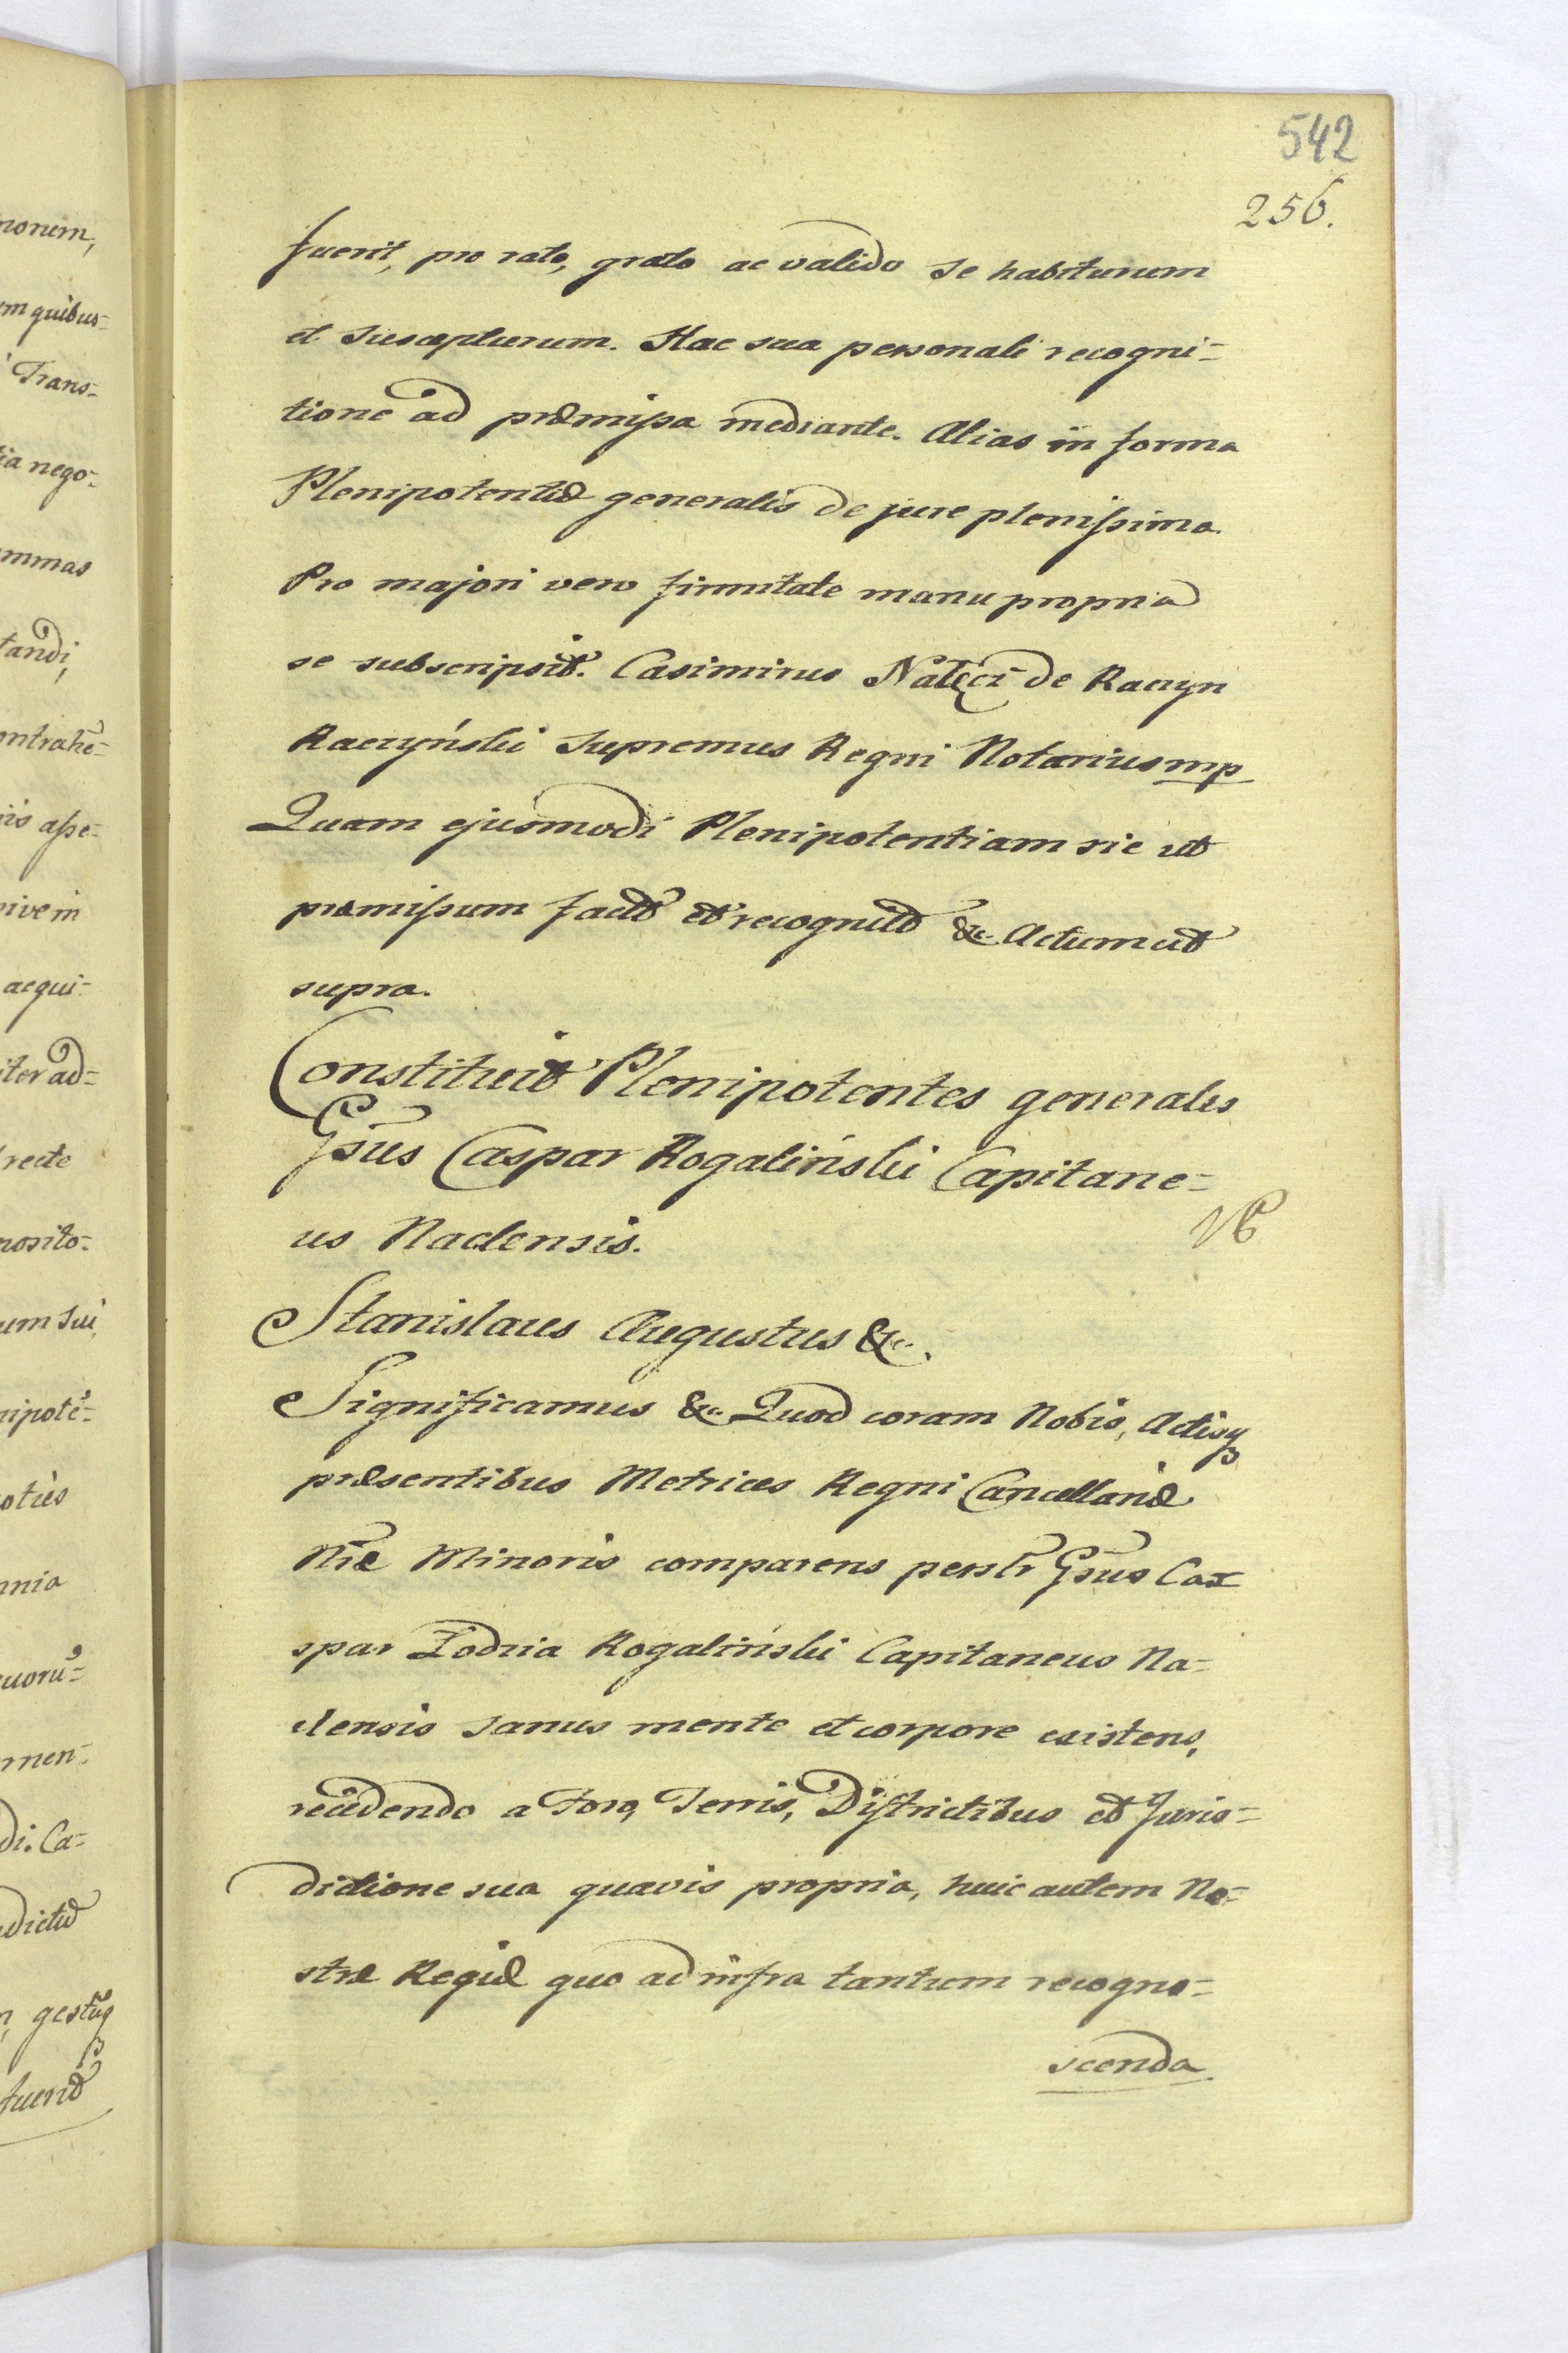 542
256.
fuerit, pro rato, grato ac valido se habiturum
et suscepturum. Hac sua personali recogni-
tione ad præmissa mediante. Alias in forma
Plenipotentiæ generalis de jure plenissima.
Pro majori vero firmitate manu propria
se subscripsit. Casimirus Nałęcz de Raczyn
Raczyński Supremus Regni Notarius mp
Quam ejusmodi Plenipotentiam sic ut
præmissum fact et recognit &c. Actum ut
supra.
Constituit Plenipotentes generales
Gsus Caspar Rogaliński Capitane-
us Naclensis.
Stanislaus Augustus &c.
Significamus &c. Quod coram Nobis, Actisq
præsentibus Metrices Regni Cancellariæ
Nræ Minoris comparens persltr Gsus Ca
spar Łodzia Rogaliński Capitaneus Na-
clensis sanus mente et corpore existens,
recedendo a Foro, Terris, Districtibus et Juris-
dictione sua quavis propria, huic autem No-
stræ Regiæ quo ad infra tantum recogno-
scenda
nonem,
m quibus-
Trans-
ia nego-
mmas
tandi,
ontrahe-
iis asse-
sive in
acqui-
iter ad-
recte
nosito-
um sui,
nipote-
otius
nnia
uoru-
men-
di. Ca-
dictæ
n, gestuq
fuerit